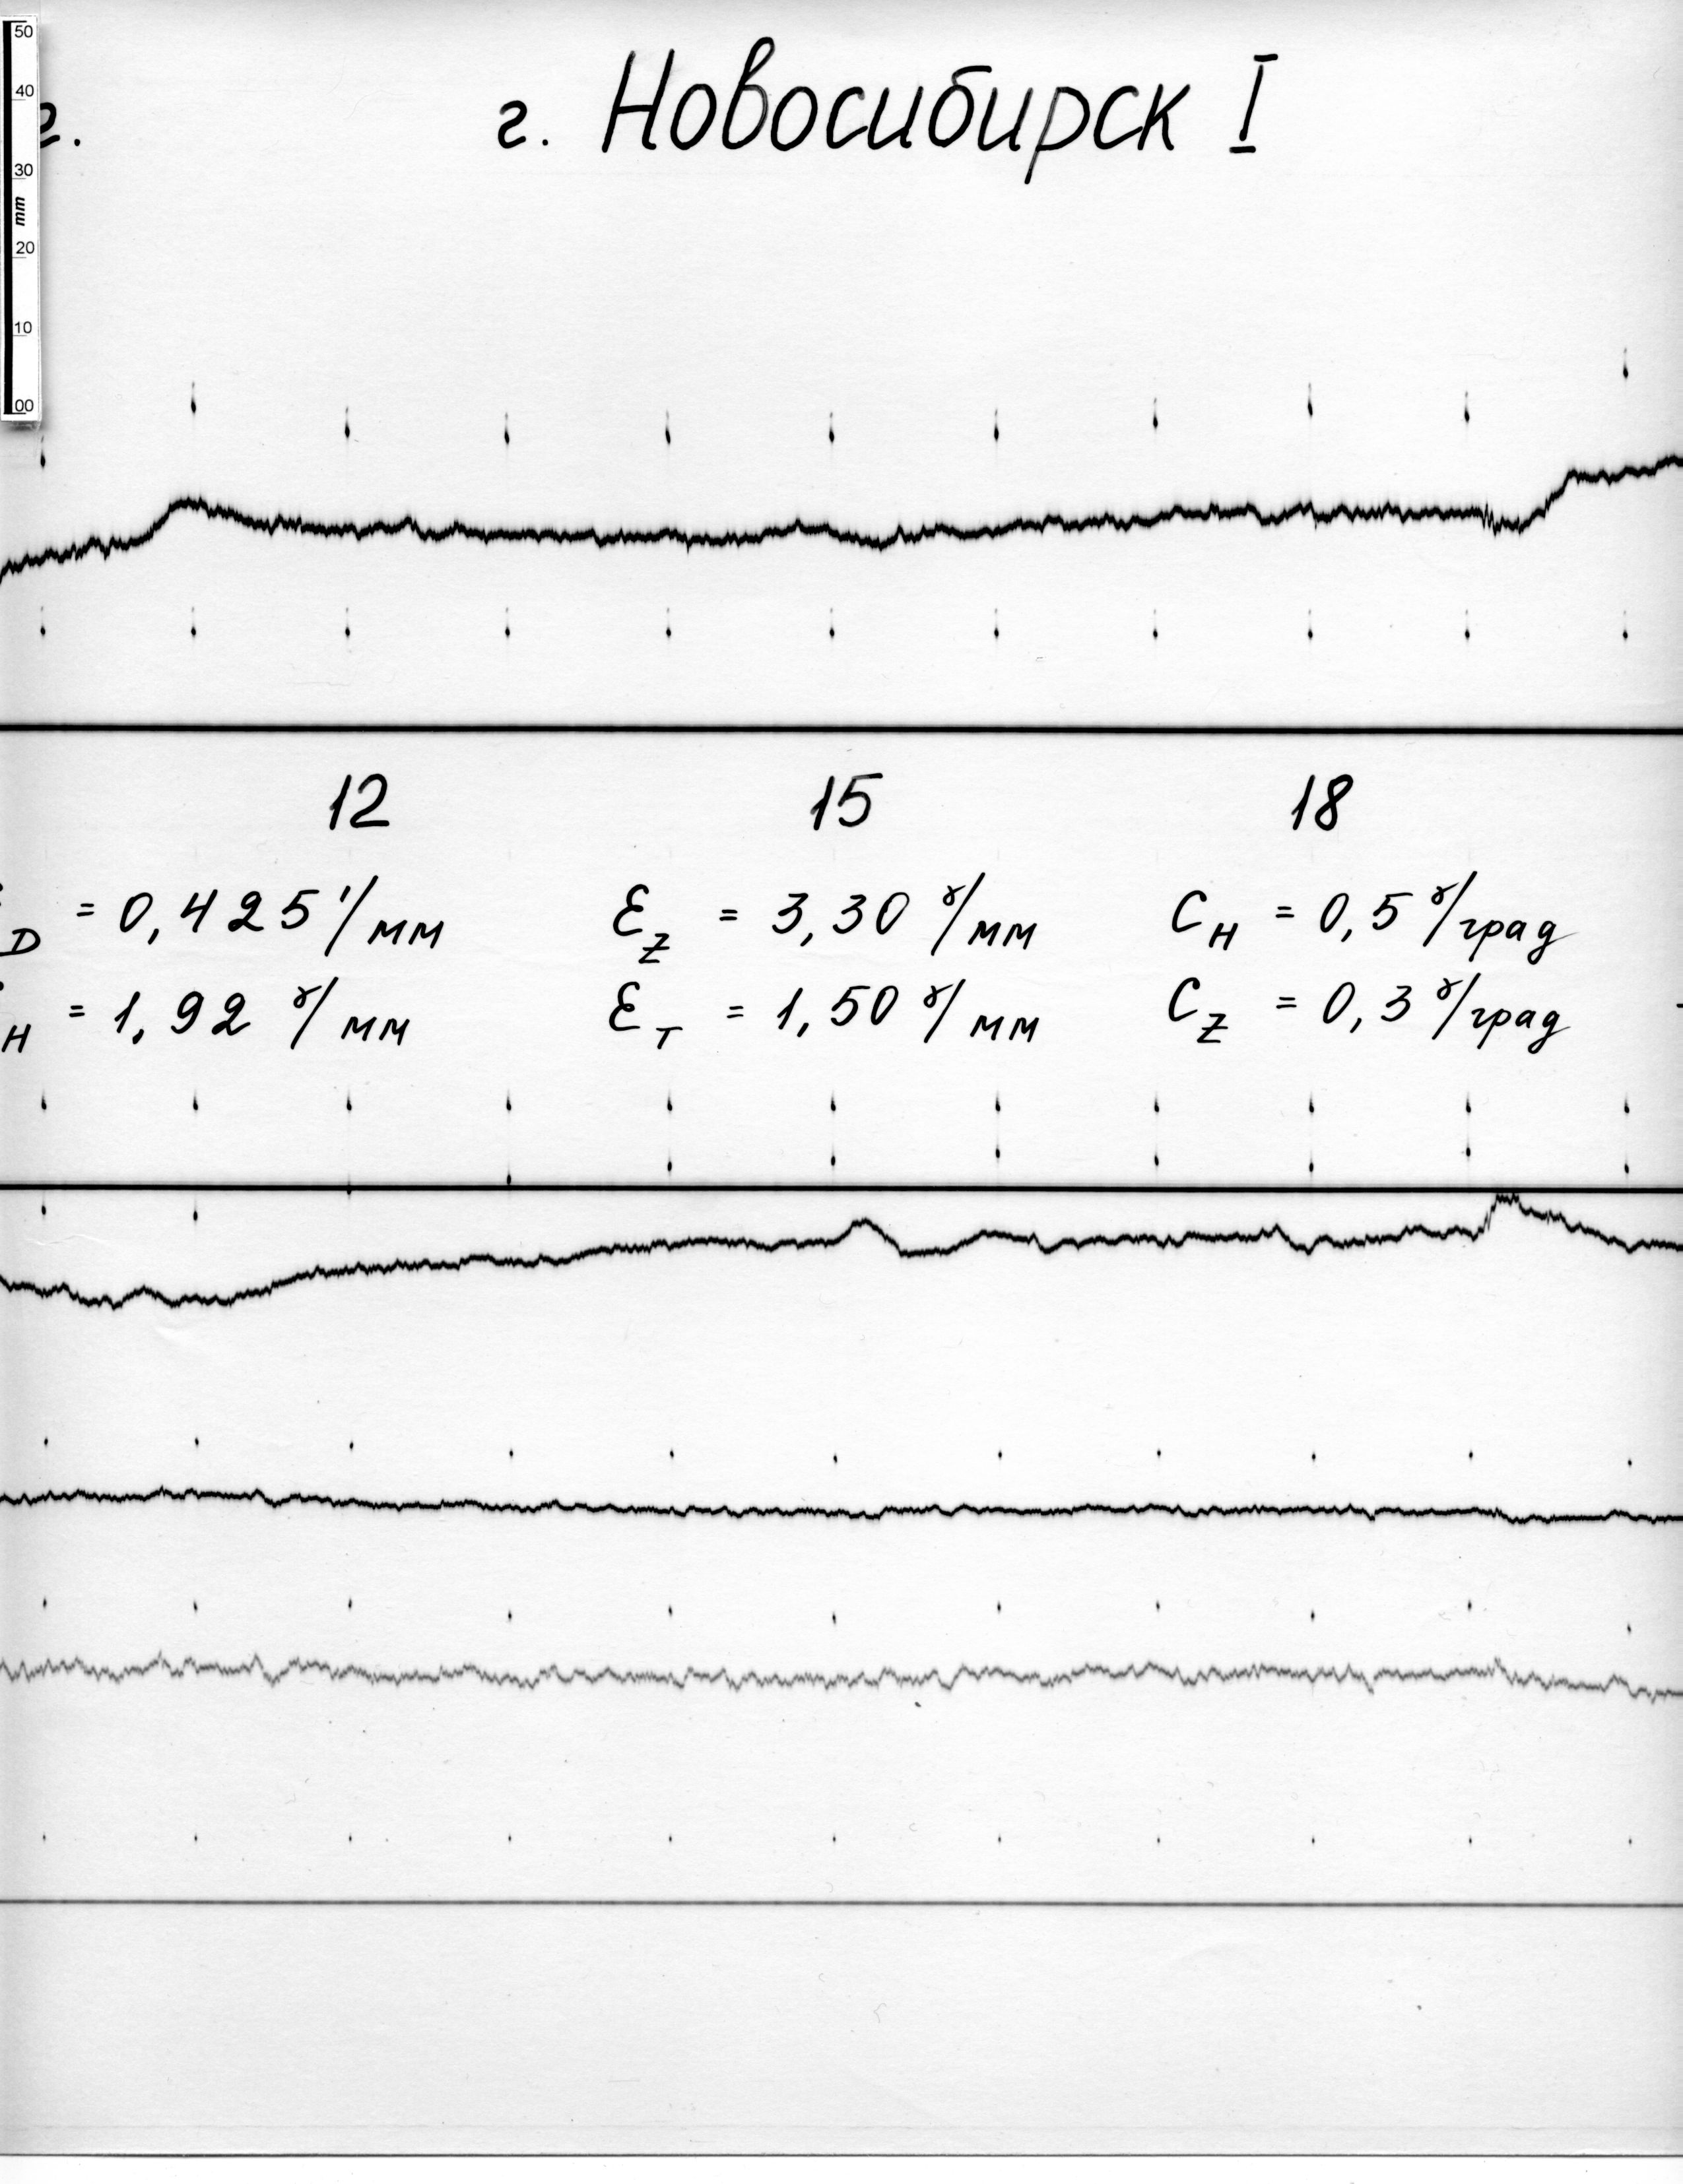 50
40
30
mm
20
10
00
г. г. Новосибирск I
12 15 18
D = 0,425'/мм Ɛ_Z = 3,30 γ/мм C_H = 0,5 γ/град
H = 1,92 γ/мм Ɛ_T = 1,50 γ/мм C_Z = 0,3 γ/град